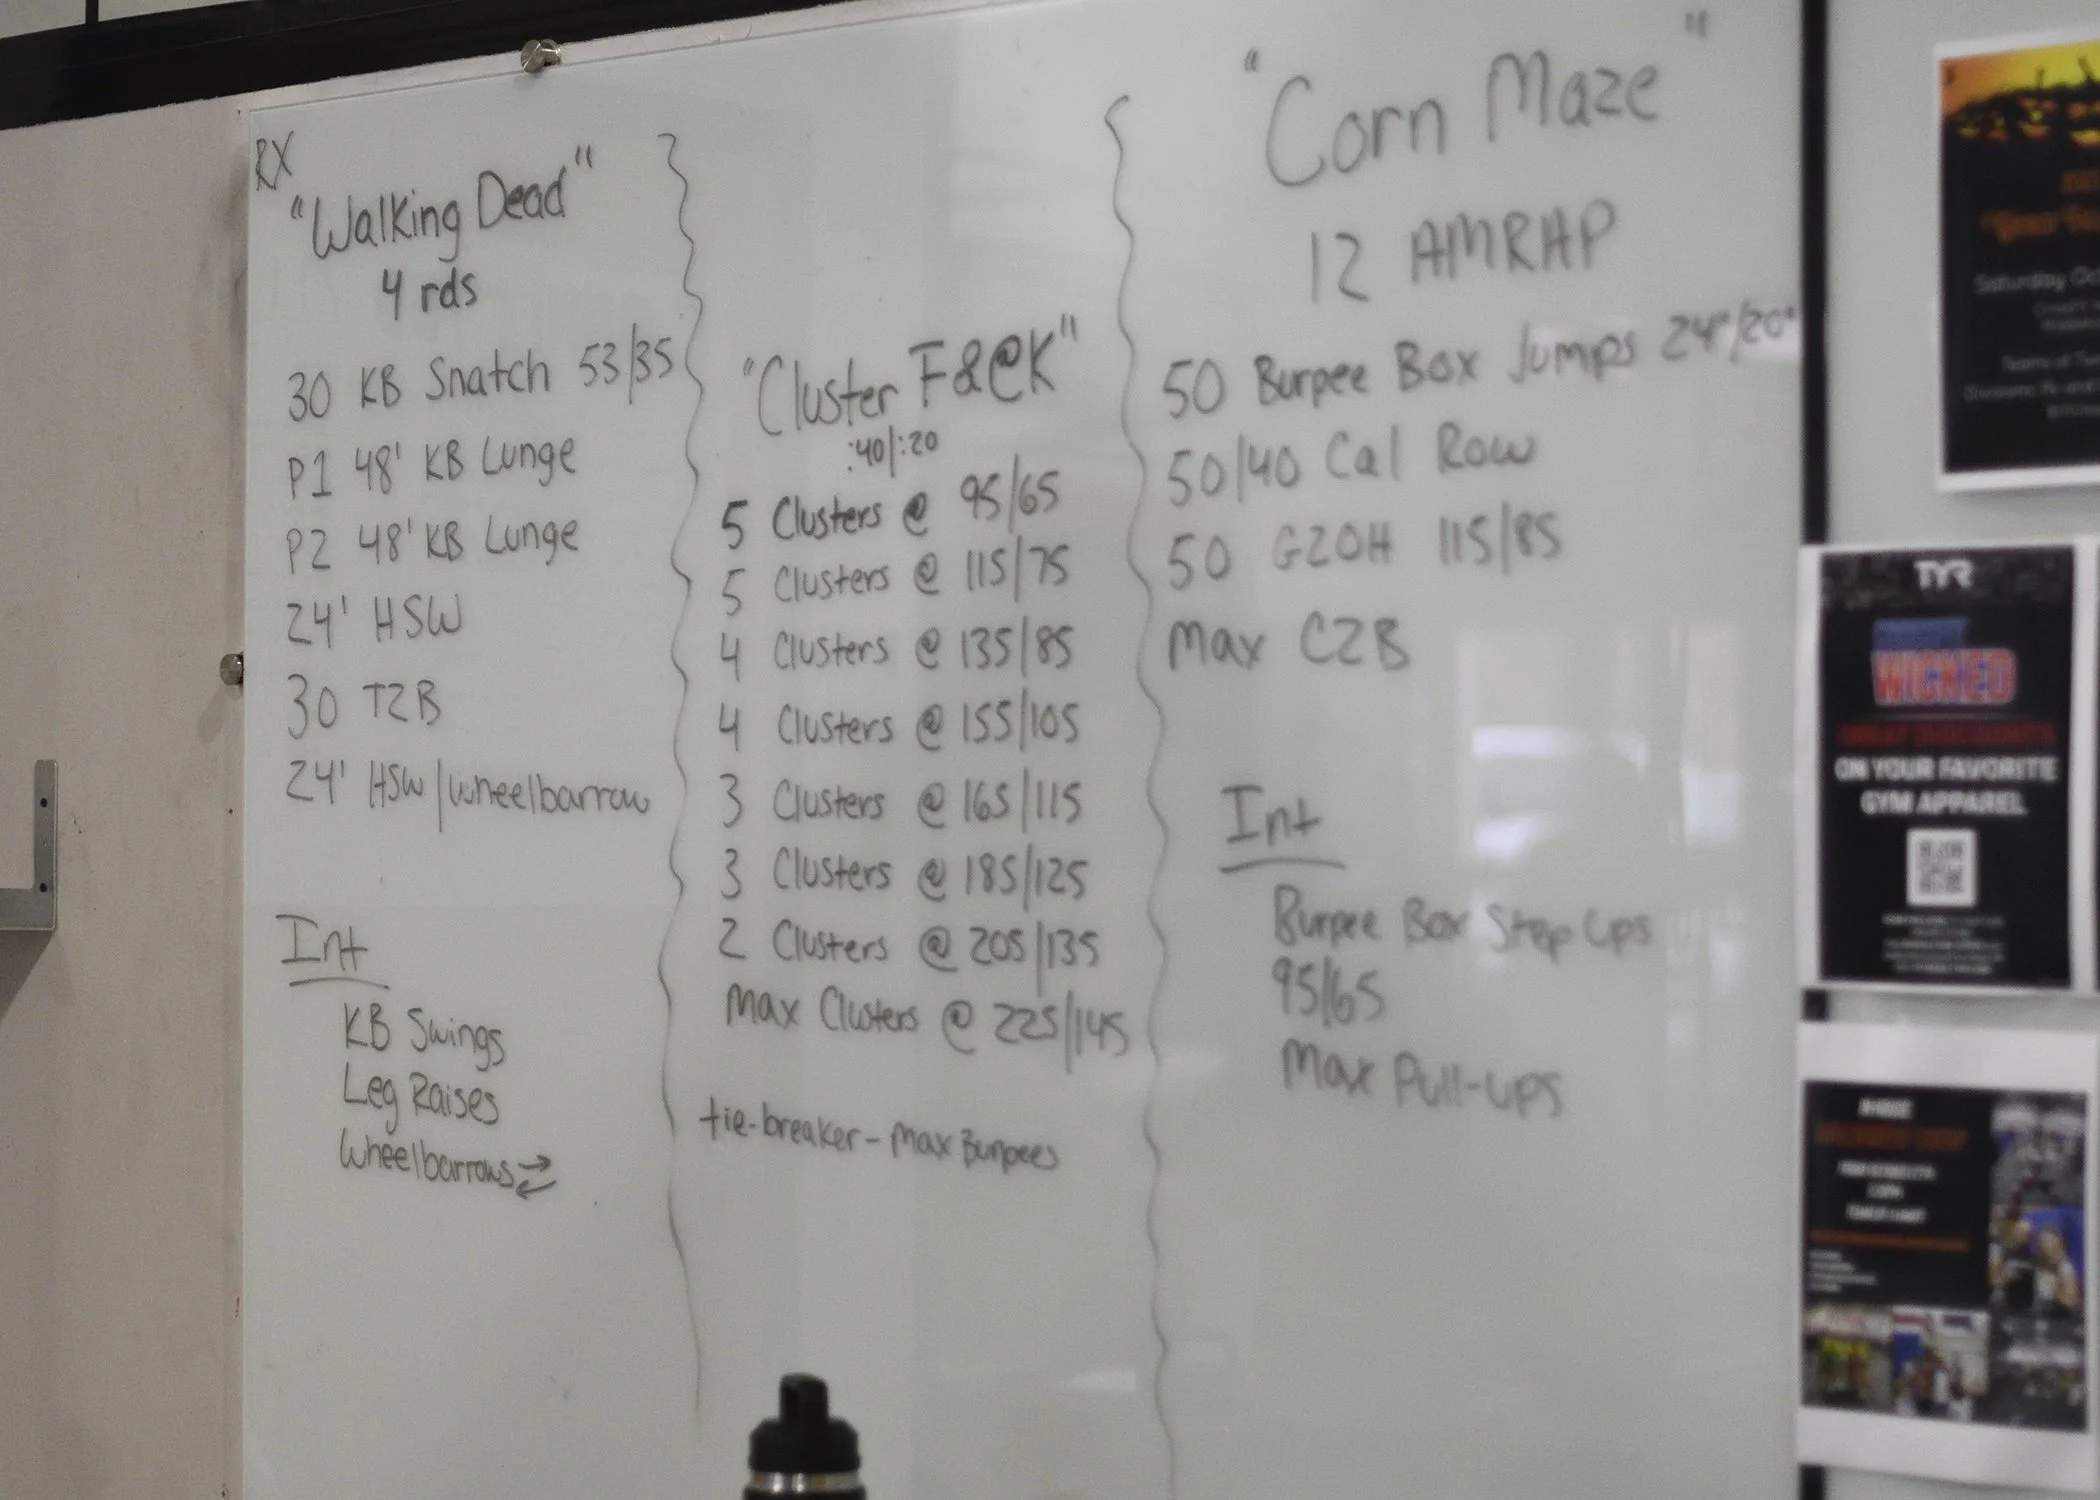 RX
"Walking Dead"
4 rds
30 KB Snatch 53/35
P1 48' KB Lunge
P2 48' KB Lunge
24' HSW
30 T2B
24' HSW/wheelbarrow
Int
KB Swings
Leg Raises
Wheelbarrows
"Cluster F&@K"
:40/:20
5 Clusters @ 95/65
5 Clusters @ 115/75
4 Clusters @ 135/85
4 Clusters @ 155/105
3 Clusters @ 165/115
3 Clusters @ 185/125
2 Clusters @ 205/135
Max Clusters @ 225/145
tie-breaker - Max Burpees
"Corn Maze"
12 AMRAP
50 Burpee Box Jumps 24"/20"
50/40 Cal Row
50 G2OH 115/85
Max C2B
Int
Burpee Box Step Ups
95/65
Max Pull-ups
Saturday
TYR
WICKED
ON YOUR FAVORITE
GYM APPAREL